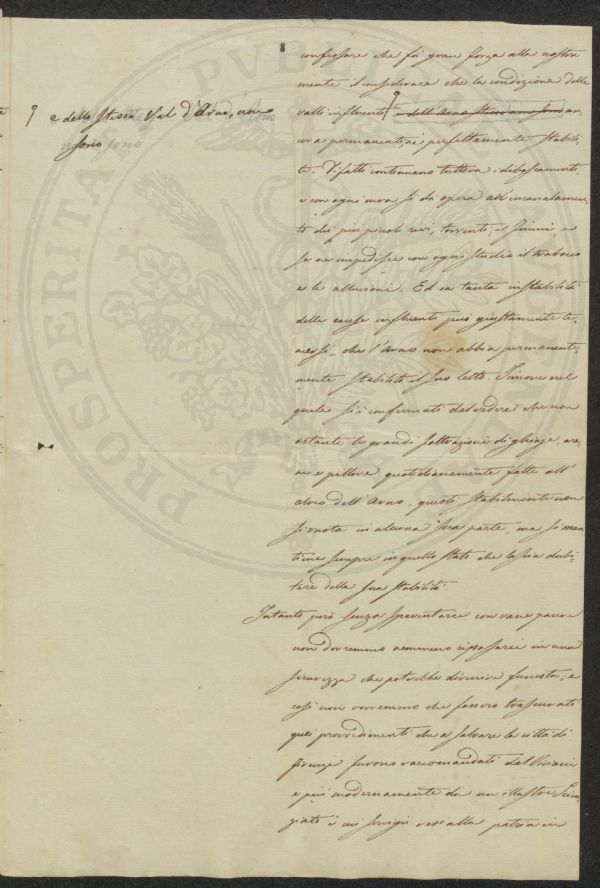 8
confessare che fa gran forza alla nostra
mente il considerare che la condizione delle
valli influenti e dell'Arno stesso non sono an-
cora permanenti, nè perfettamente stabili-
te. Difatti continuano tuttora i disboscamenti,
e con ogni cura si dà opera all'incanalamen-
to dei più piccoli rivi, torrenti, e fiumi, e
se ne impedisce con ogni studio il trabocco
e le alluvioni. Ed in tanta instabilità
delle cause influenti può giustamente te-
mersi, che l'Arno non abbia permanente-
mente stabilito il suo letto. Timore nel
quale si è confermati dal vedere che non
ostante le grandi sottrazioni di ghiaje, are-
ne e pillore quotidianamente fatte all'
alveo dell'Arno, questo stabilmente non
si vuota in alcuna sua parte, ma si man-
tiene sempre in quello stato che lascia dubi-
tare della sua stabilità.
Intanto però senza spaventarci con vane paure
non dovremmo nemmeno riposarci in una
sicurezza che potrebbe divenire funesta; e
così non vorremmo che fossero trascurati
quei provvedimenti che a salvare la città di
Firenze furono raccomandati dal Viviani
e più modernamente da un illustre Scien-
ziato i cui servigii resi alla patria in
e dello stesso Val d'Arno, non
sono
PROSPERITATI PVBLI